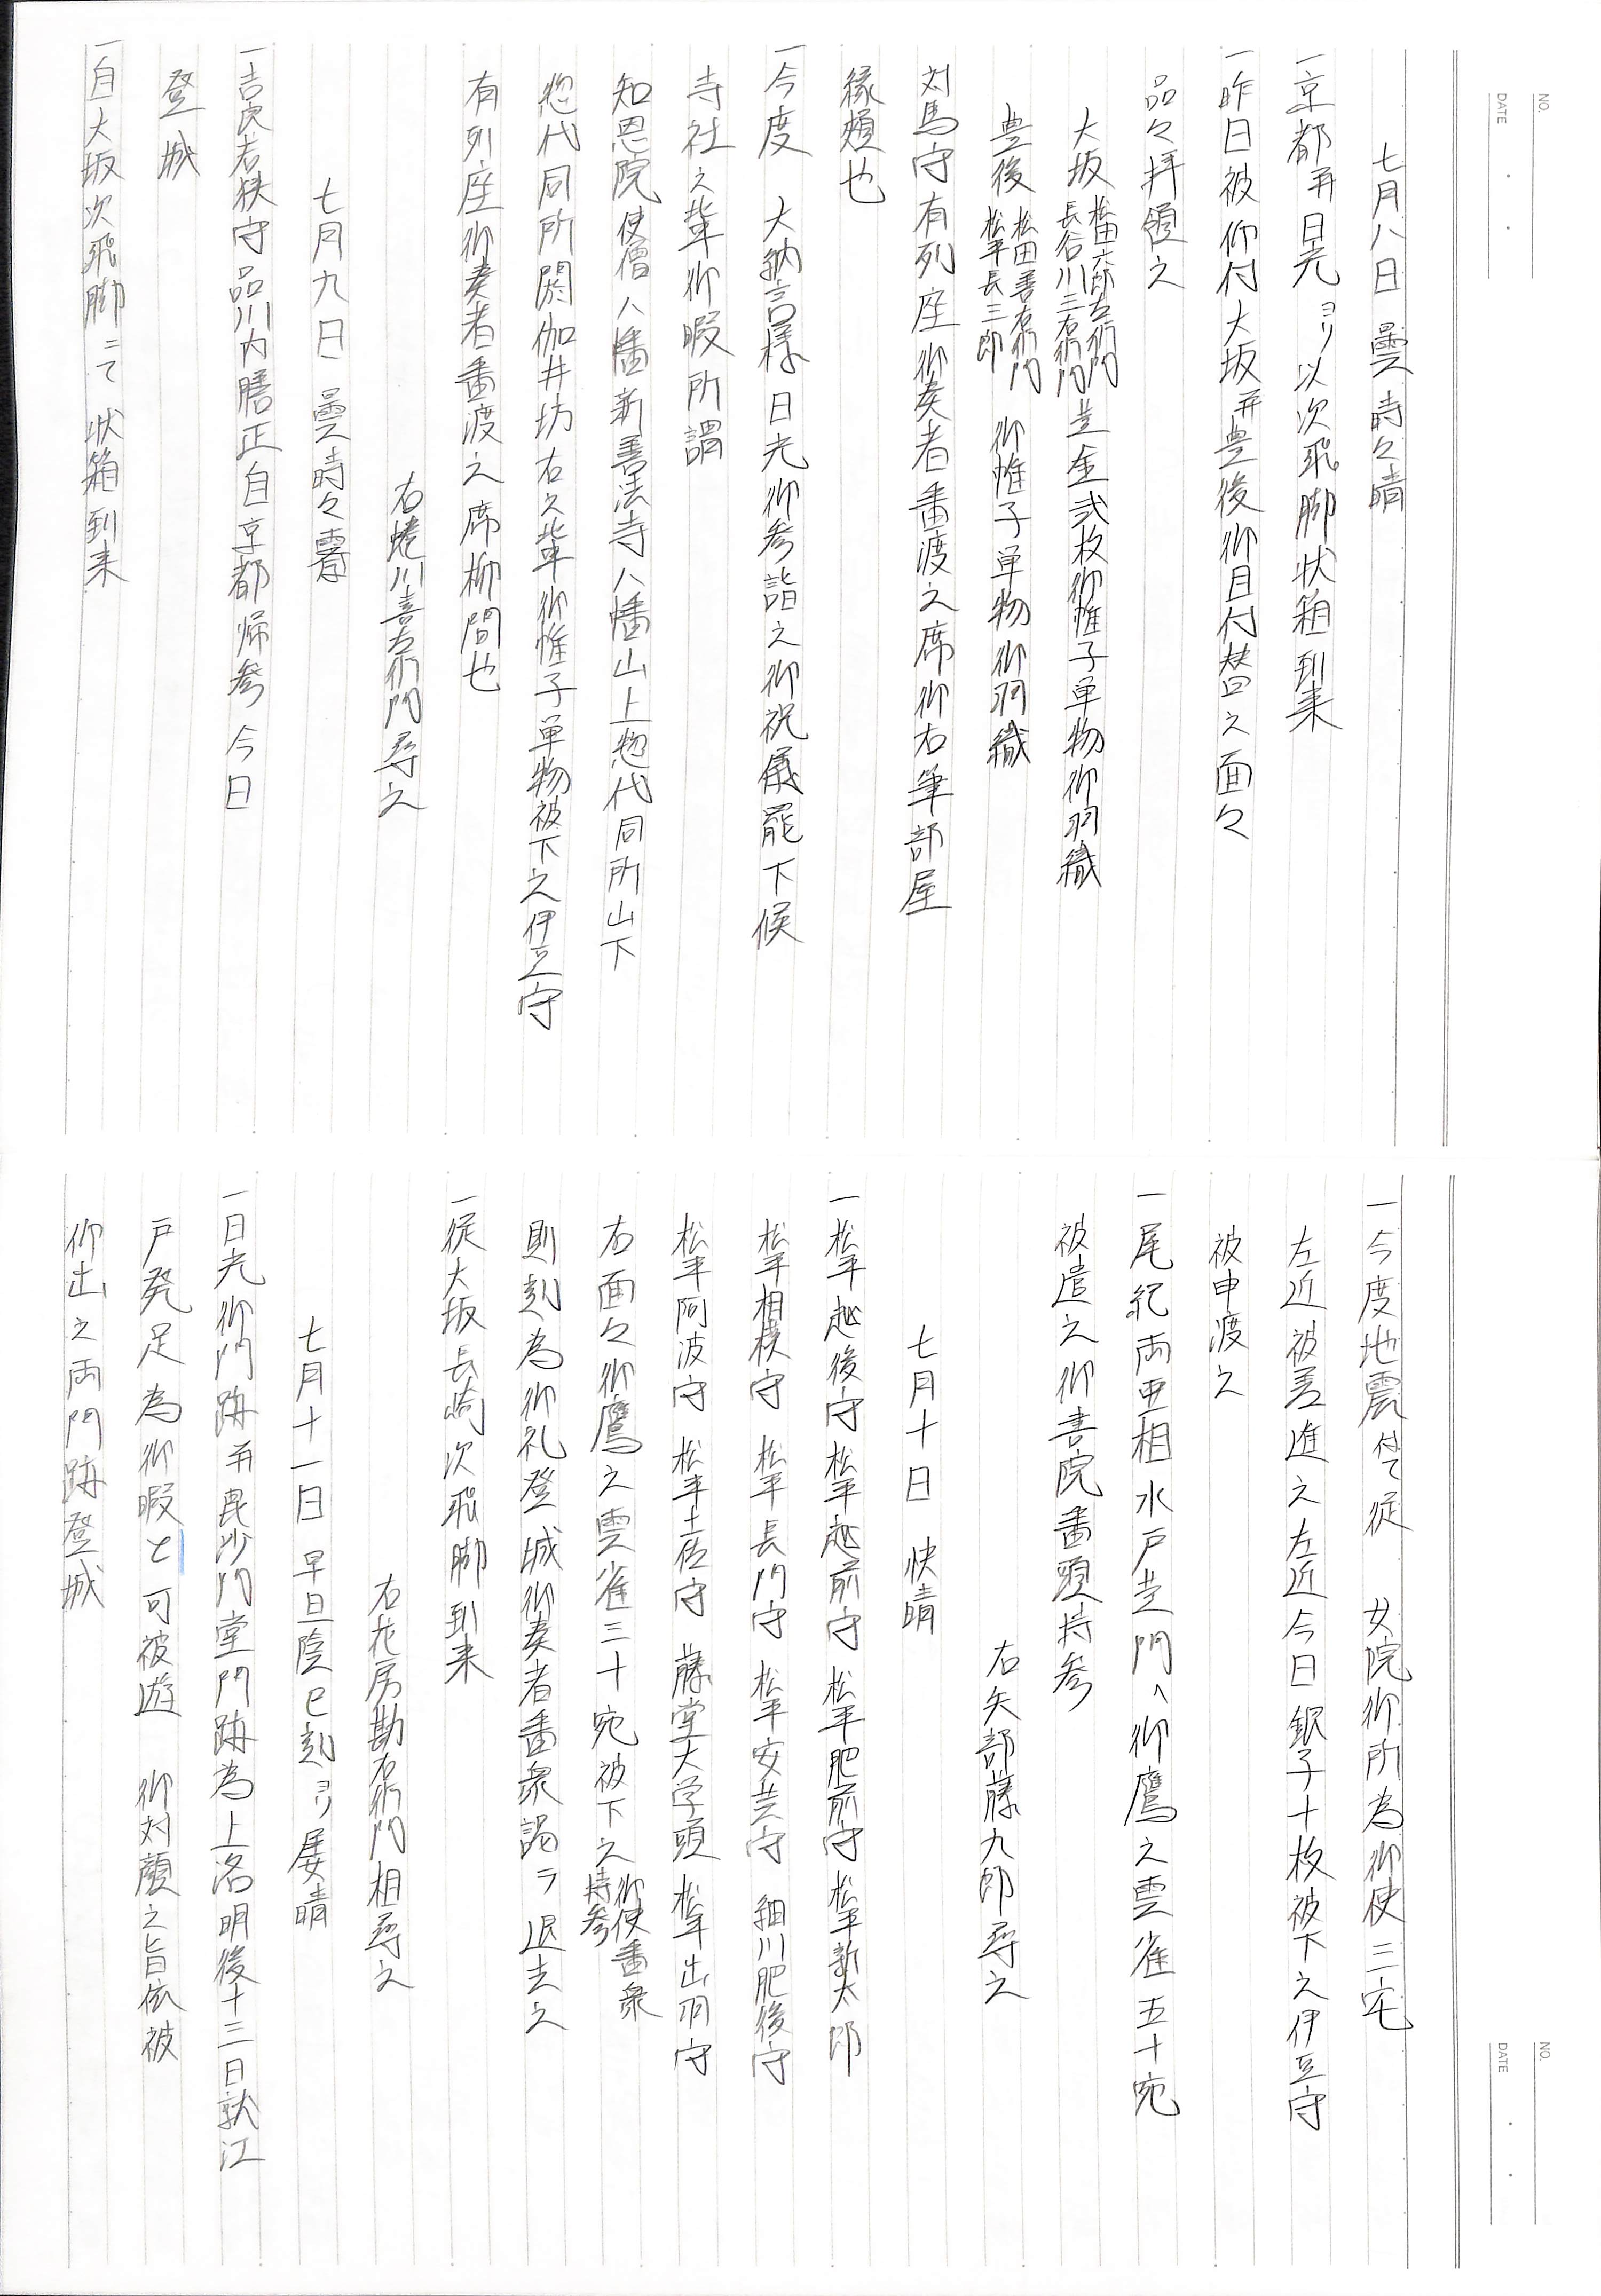 NO.
DATE
七月八日 曇時々晴
一京都并日光ヨリ以次飛脚状箱到来
一昨日被仰付大坂并豊後御目付替之面々
品々拝領之
大坂 松田六郎左衛門 長谷川三右衛門 並金弐枚御帷子単物御羽織
豊後 松田善右衛門 松平長三郎 御帷子単物御羽織
対馬守有列座御奏者番渡之席御右筆部屋
縁頬也
一今度 大納言様日光御参詣之御祝儀罷下候
寺社之輩御暇所謂
知恩院使僧八幡新善法寺八幡山上惣代同所山下
惣代同所閼伽井坊右之輩御帷子単物被下之伊豆守
有列座御奏者番渡之席柳間也
右蜷川喜左衛門尋之
七月九日 曇時々霽
一吉良若狭守品川内膳正自京都帰参今日
登城
一自大坂次飛脚ニて状箱到来
NO.
DATE
一今度地震付て従 女院御所為御使三宅
左近被差進之左近今日銀子十枚被下之伊豆守
被申渡之
一尾紀両亜相水戸並門へ御鷹之雲雀五十宛
被遣之御書院番頭持参
右矢部藤九郎尋之
七月十日 快晴
一松平越後守松平越前守松平肥前守松平新太郎
松平相模守松平長門守松平安芸守細川肥後守
松平阿波守松平土佐守藤堂大学頭松平出羽守
右面々御鷹之雲雀三十宛被下之 御使番衆 持参
則刻為御礼登城御奏者番衆謁ラ退去之
一従大坂長崎次飛脚到来
右花房勘右衛門相尋之
七月十一日 早旦陰巳刻ヨリ屡晴
一日光御門跡并毘沙門堂門跡為上洛明後十三日就江
戸発足為御暇と可被遊 御対顔之旨依被
仰出之両門跡登城